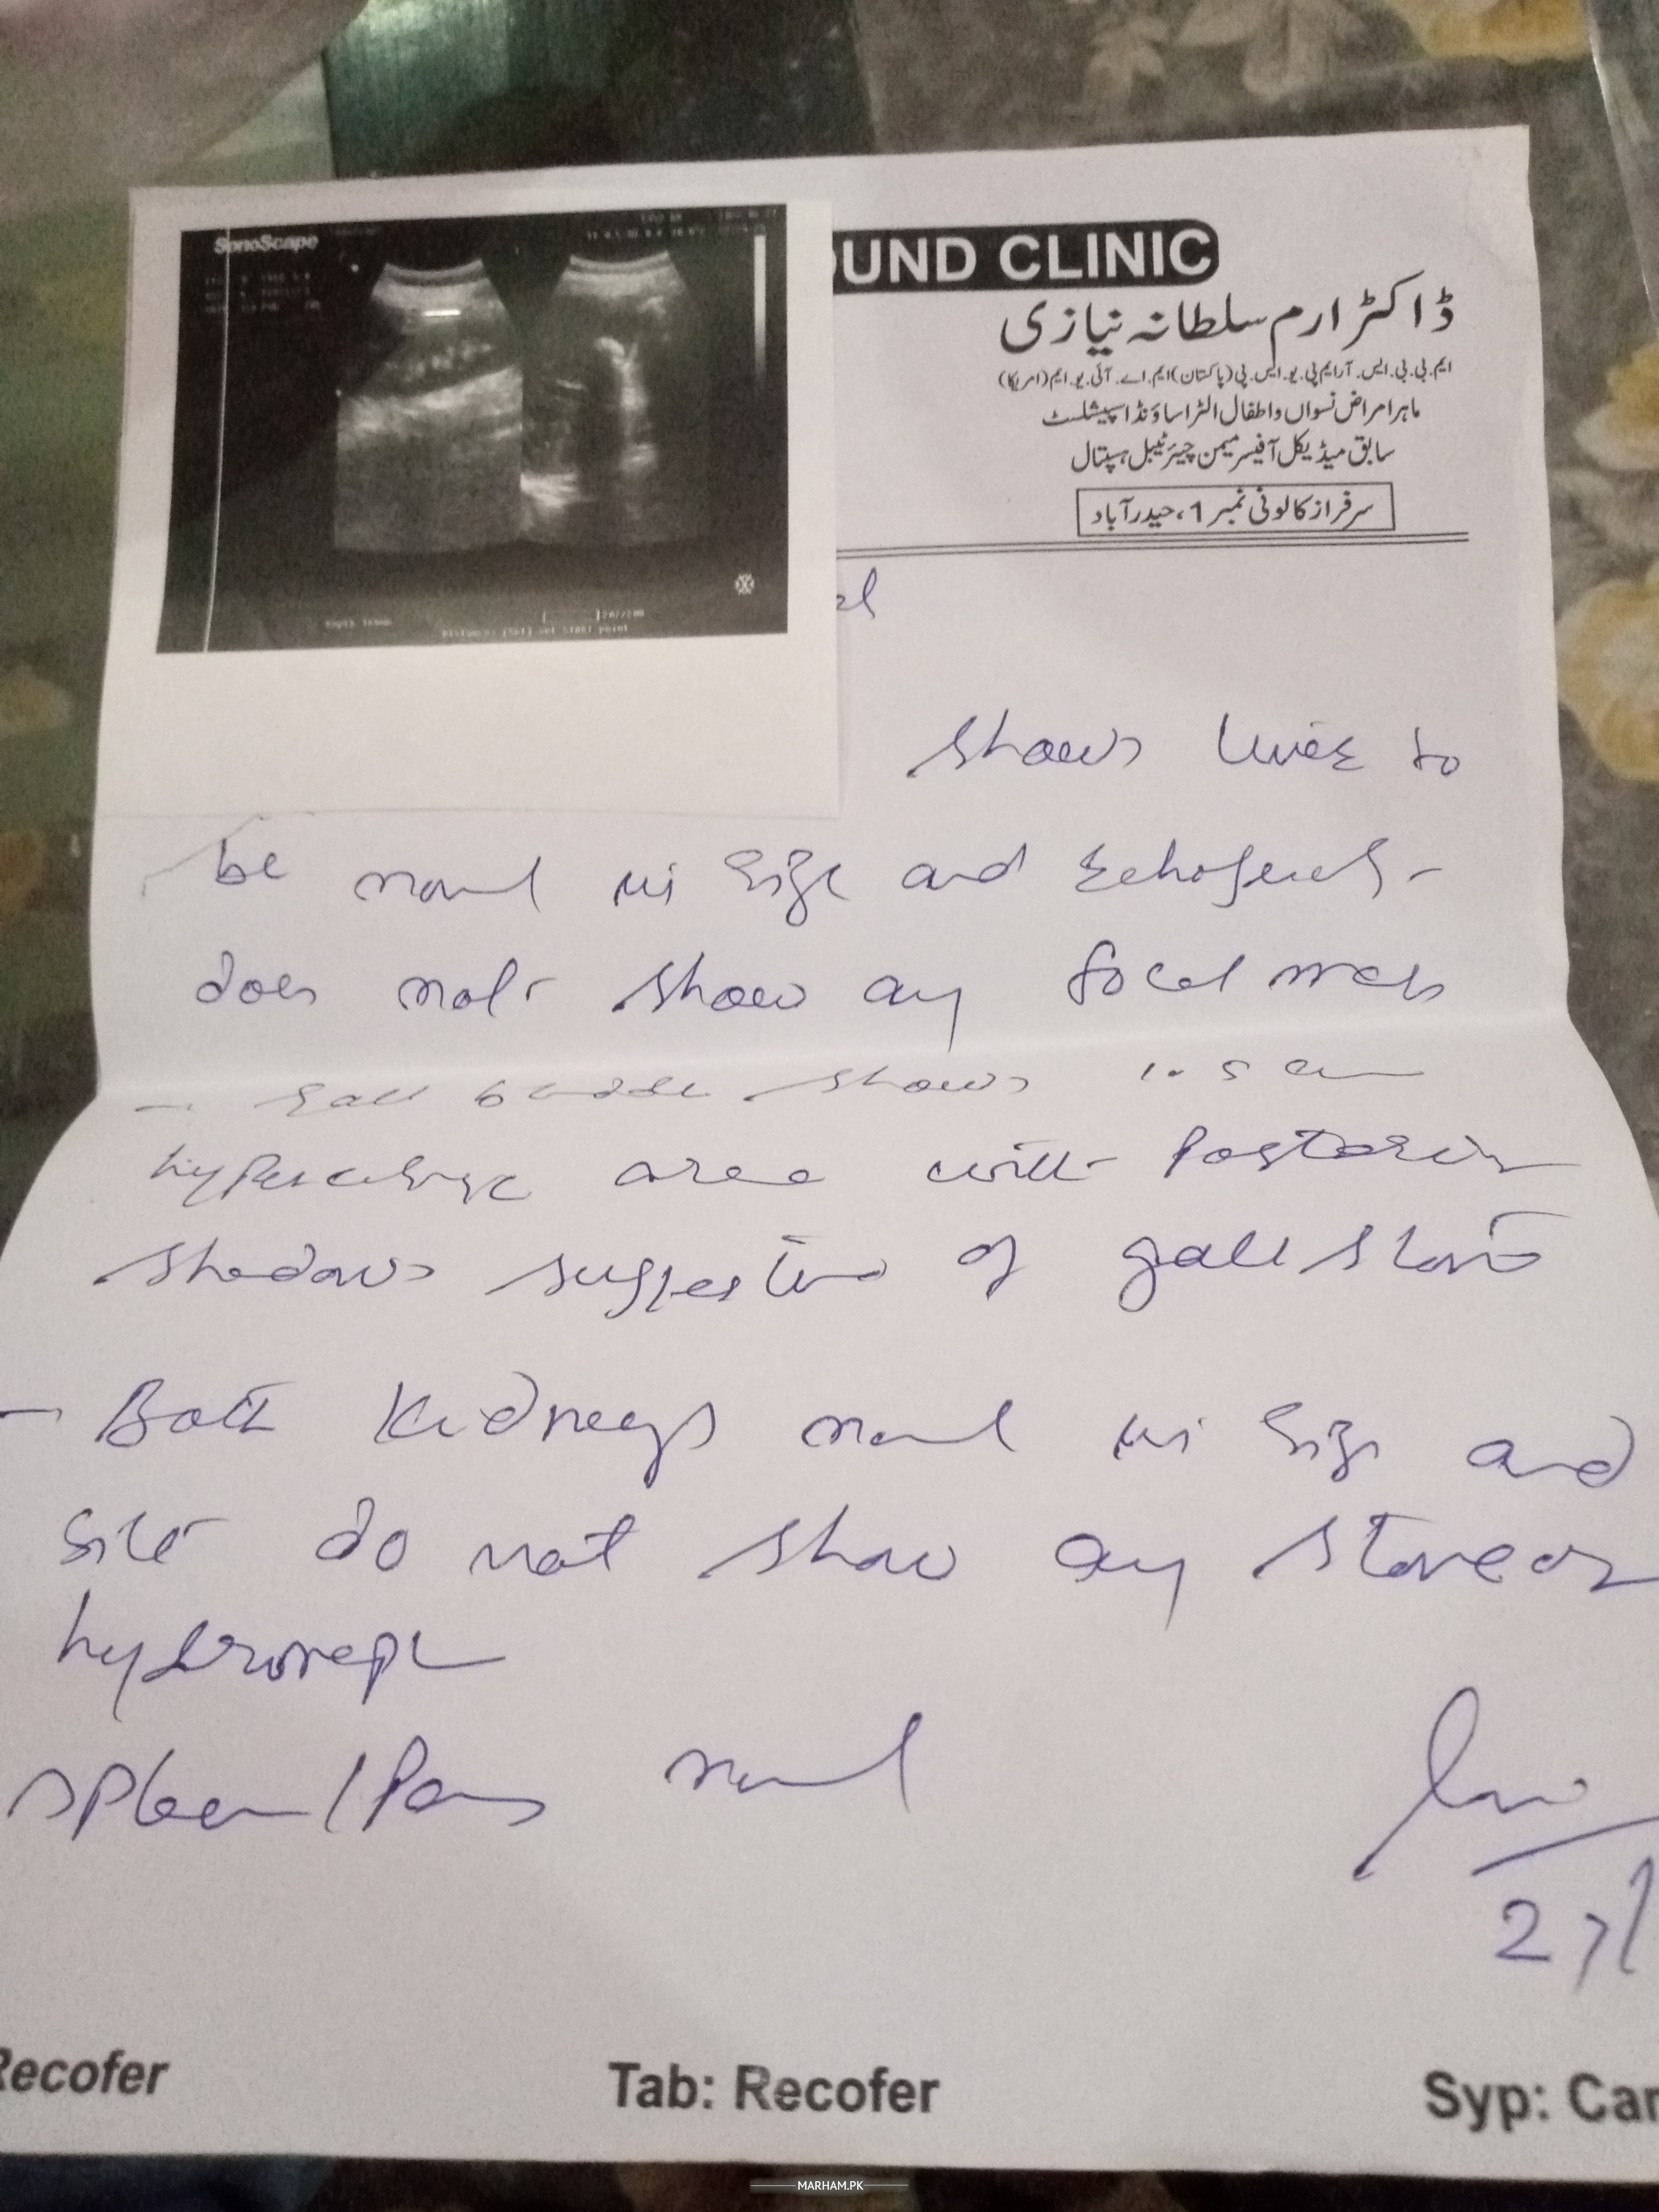 SonoScape
UND CLINIC
ڈاکٹر ارم سلطانہ نیازی
ایم.بی.بی.ایس. آر.ایم.پی.یو.ایس.پی (پاکستان) ایم.اے.آئی.یو.ایم (امریکا)
ماہر امراض نسواں و اطفال الٹراساؤنڈ اسپیشلسٹ
سابق میڈیکل آفیسر میمن چیرٹیبل ہسپتال
سرفراز کالونی نمبر 1، حیدرآباد
shows liver to
be normal in size and
does not show any focal mass
- Gall bladder shows 1.5 cm
area with Posterior
shadows suggestive of gall stone
- Both Kidneys normal in size and
site do not show any stone or
hydroneph
spleen / Pan normal
27/
Recofer
Tab: Recofer
Syp: Car
MARHAM.PK